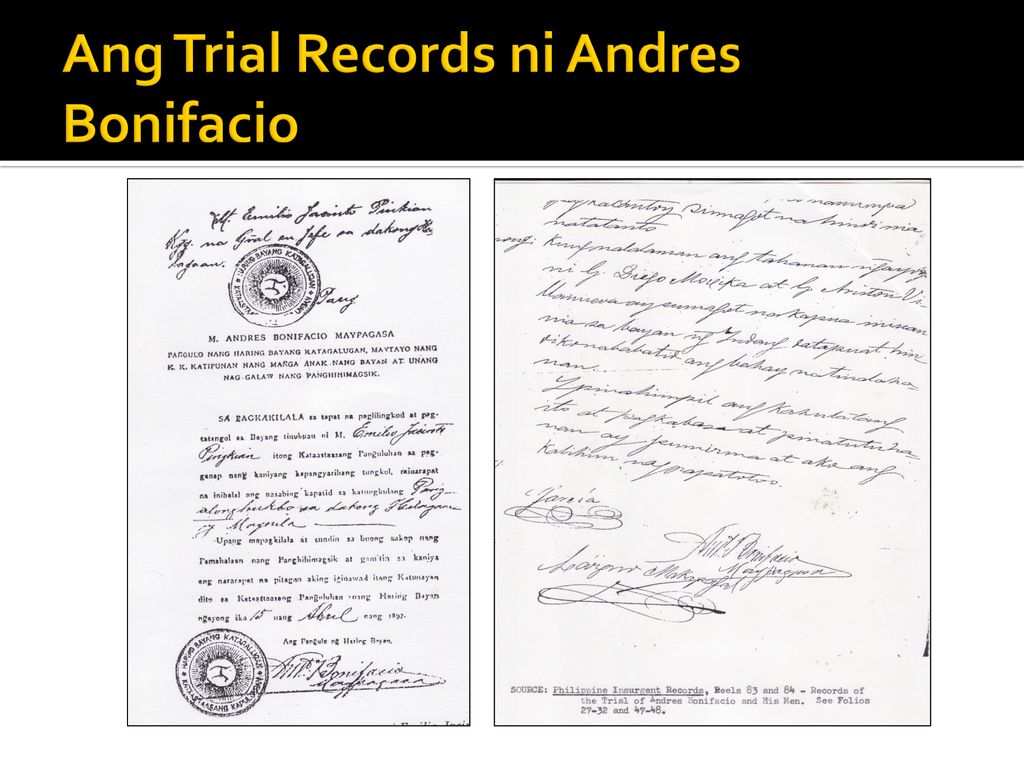 Ang Trial Records ni Andres
Bonifacio
M. Emilio Jacinto Pinkian
Kgg. na Gral en Jefe sa dakong Hi-
lagaan.
HARING BAYANG KATAGALUGAN
Pang
M. ANDRES BONIFACIO MAYPAGASA
PANGULO NANG HARING BAYANG KATAGALUGAN, MAYTAYO NANG
K. K. KATIPUNAN NANG MANGA ANAK NANG BAYAN AT UNANG
NAG GALAW NANG PANGHIHIMAGSIK.
SA PAGKAKILALA sa tapat na paglilingkod at pag-
tatangol sa Bayang tinubuan ni M. Emilio Jacinto
Pingkian itong Kataastaasang Panguluhan sa pag-
ganap nang kaniyang kapangyarihang tungkol, minarapat
na inihalal ang nasabing kapatid sa katungkulang Pang-
ulong hukbo sa dakong Hilagaan
ng Maynila
Upang mapagkilala at sundin sa buong sakop nang
Pamahalaan nang Panghihimagsik at gamitin sa kaniya
ang nararapat na pitagan aking iginawad itong Katunayan
dito sa Kataastaasang Panguluhan nang Haring Bayan
ngayong ika 15 nang Abril nang 1897.
Ang Pangulo ng Haring Bayan,
HARING BAYANG KATAGALUGAN
KATAASTAASANG KAPULUNGAN
And. Bonifacio
Maypagasa
sinagot na hindi na
natatanto
Kung nalalaman ang tahanan ngayon
ni G. Diego Mojika at G. Ariston Vi-
llanueva ay sumagot na kapua
sa bayan ng Indang datapuat hin
di konababatid ang bahay na tinitaha-
nan.
Ipinahimpil ang kahulatang
ito at pagkabasa at pinatutuha-
nan ay pumirma at ako ang
kalihim nagpapatotoo.
Garcia
And. Bonifacio
Maypagasa
Lázaro Makapagal
SOURCE: Philippine Insurgent Records, Reels 83 and 84 - Records of
the Trial of Andres Bonifacio and His Men. See Folios
27-32 and 47-48.